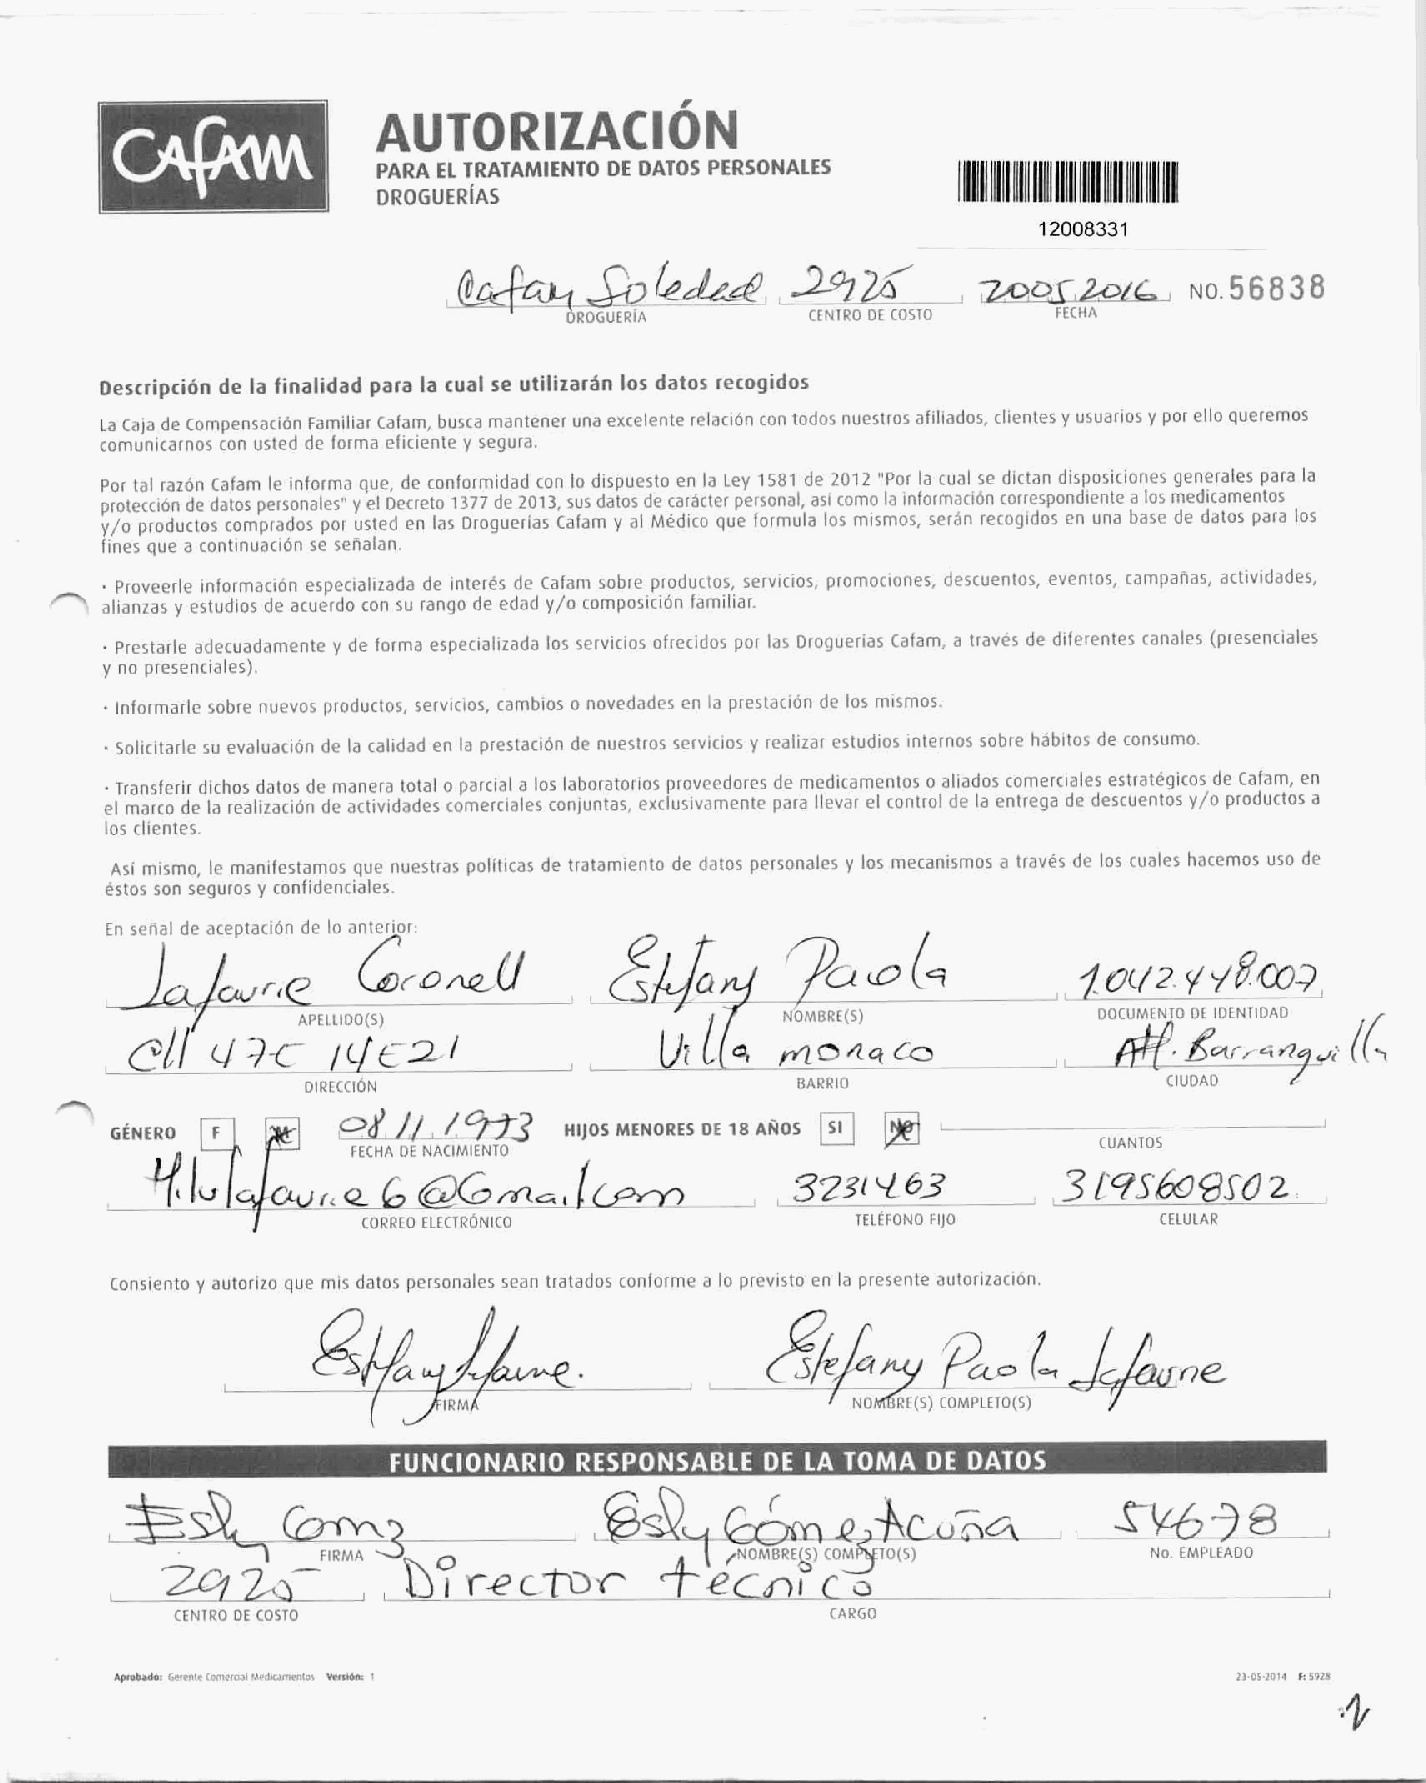 CAFAM
AUTORIZACIÓN
PARA EL TRATAMIENTO DE DATOS PERSONALES
DROGUERÍAS
12008331
Cafam Soledad 2925 20052016 NO. 56838
DROGUERÍA CENTRO DE COSTO FECHA
Descripción de la finalidad para la cual se utilizarán los datos recogidos
La Caja de Compensación Familiar Cafam, busca mantener una excelente relación con todos nuestros afiliados, clientes y usuarios y por ello queremos
comunicarnos con usted de forma eficiente y segura.
Por tal razón Cafam le informa que, de conformidad con lo dispuesto en la Ley 1581 de 2012 "Por la cual se dictan disposiciones generales para la
protección de datos personales" y el Decreto 1377 de 2013, sus datos de carácter personal, así como la información correspondiente a los medicamentos
y/o productos comprados por usted en las Droguerías Cafam y al Médico que formula los mismos, serán recogidos en una base de datos para los
fines que a continuación se señalan.
· Proveerle información especializada de interés de Cafam sobre productos, servicios, promociones, descuentos, eventos, campañas, actividades,
alianzas y estudios de acuerdo con su rango de edad y/o composición familiar.
· Prestarle adecuadamente y de forma especializada los servicios ofrecidos por las Droguerías Cafam, a través de diferentes canales (presenciales
y no presenciales).
· Informarle sobre nuevos productos, servicios, cambios o novedades en la prestación de los mismos.
· Solicitarle su evaluación de la calidad en la prestación de nuestros servicios y realizar estudios internos sobre hábitos de consumo.
· Transferir dichos datos de manera total o parcial a los laboratorios proveedores de medicamentos o aliados comerciales estratégicos de Cafam, en
el marco de la realización de actividades comerciales conjuntas, exclusivamente para llevar el control de la entrega de descuentos y/o productos a
los clientes.
Así mismo, le manifestamos que nuestras políticas de tratamiento de datos personales y los mecanismos a través de los cuales hacemos uso de
éstos son seguros y confidenciales.
En señal de aceptación de lo anterior:
Lafaurie Coronell Estefany Paola 1.042.448.007
APELLIDO(S) NOMBRE(S) DOCUMENTO DE IDENTIDAD
Cll 47C 14E21 Villa monaco Atl. Barranquilla
DIRECCIÓN BARRIO CIUDAD
GÉNERO F 08.11.1973 HIJOS MENORES DE 18 AÑOS SI NO
FECHA DE NACIMIENTO CUANTOS
lafaurie6@Gmail.com 3231463 3195608502
CORREO ELECTRÓNICO TELÉFONO FIJO CELULAR
Consiento y autorizo que mis datos personales sean tratados conforme a lo previsto en la presente autorización.
Estefany Lafaurie. Estefany Paola Lafaurie
FIRMA NOMBRE(S) COMPLETO(S)
FUNCIONARIO RESPONSABLE DE LA TOMA DE DATOS
Esly Gomz Esly Gómez Acuña 54678
FIRMA NOMBRE(S) COMPLETO(S) No. EMPLEADO
2925 Director técnico
CENTRO DE COSTO CARGO
Aprobado: Gerente Comercial Medicamentos Versión: 1 23-05-2014 F: 5928